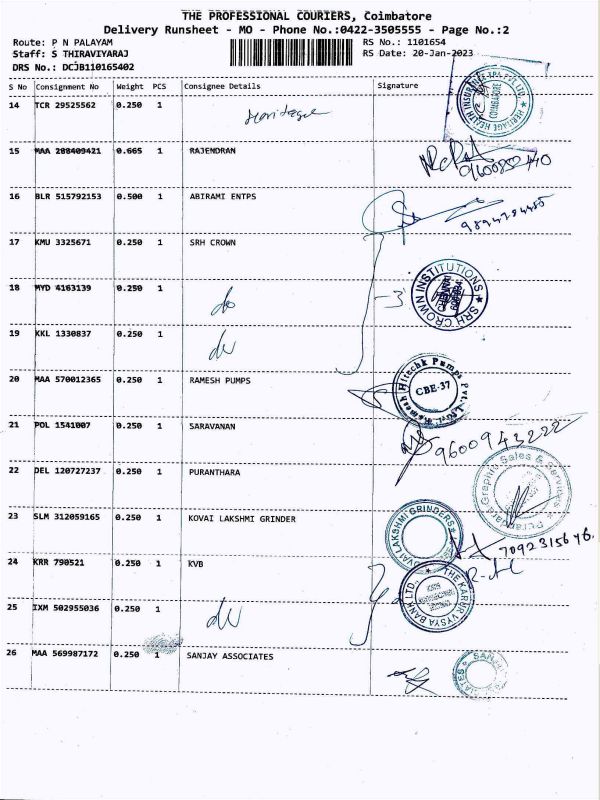 THE PROFESSIONAL COURIERS, Coimbatore
Delivery Runsheet - MO - Phone No.:0422-3505555 - Page No.:2
Route: P N PALAYAM
Staff: S THIRAVIYARAJ
DRS No.: DCJB110165402
RS No.: 1101654
RS Date: 20-Jan-2023
S No Consignment No Weight PCS Consignee Details Signature
14 TCR 29525562 0.250 1 Heritage
HERITAGE HEALTH INSURANCE TPA PVT. LTD.
COIMBATORE
15 MAA 288409421 0.665 1 RAJENDRAN
16 BLR 515792153 0.500 1 ABIRAMI ENTPS
17 KMU 3325671 0.250 1 SRH CROWN
18 MYD 4163139 0.250 1 do
-3
SRH CROWN INSTITUTIONS
19 KKL 1330837 0.250 1 do
20 MAA 570012365 0.250 1 RAMESH PUMPS
Ramesh Hitechk Pumps Pvt. Ltd.
CBE-37
21 POL 1541007 0.250 1 SARAVANAN
9600943222
22 DEL 120727237 0.250 1 PURANTHARA
Graphic Sales & Services
23 SLM 312059165 0.250 1 KOVAI LAKSHMI GRINDER
KOVAI LAKSHMI GRINDERS
7092315646.
24 KRR 790521 0.250 1 KVB
THE KARUR VYSYA BANK LTD.
25 IXM 502955036 0.250 1 do
26 MAA 569987172 0.250 1 SANJAY ASSOCIATES
SANJAY